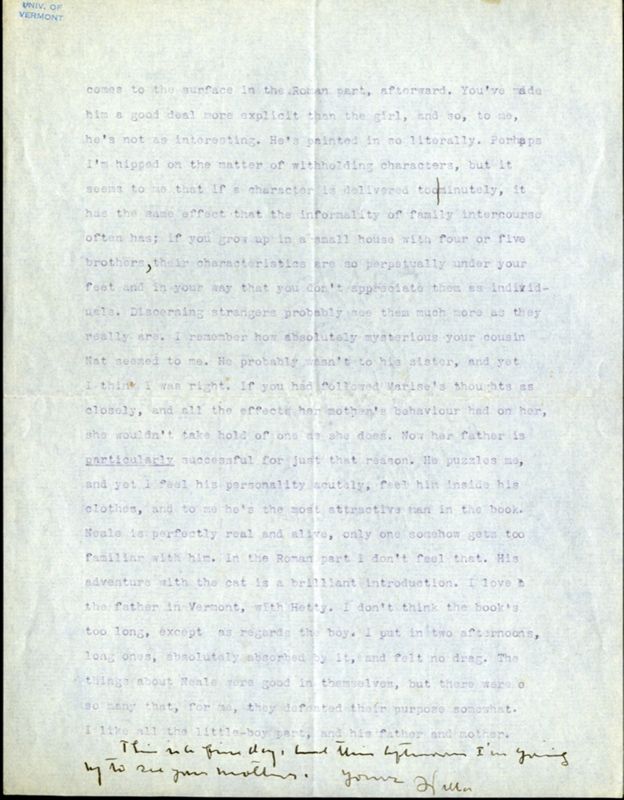 UNIV. OF
VERMONT
comes to the surface in the Roman part, afterward. You've made
him a good deal more explicit than the girl, and so, to me,
he's not as interesting. He's painted in so literally. Perhaps
I'm hipped on the matter of withholding characters, but it
seems to me that if a character is delivered too minutely, it
has the same effect that the informality of family intercourse
often has; if you grow up in a small house with four or five
brothers, their characteristics are so perpetually under your
feet and in your way that you don't appreciate them as individ-
uals. Discerning strangers probably see them much more as they
really are. I remember how absolutely mysterious your cousin
Nat seemed to me. He probably wasn't to his sister, and yet
I think I was right. If you had followed Marise's thoughts as
closely, and all the effects her mother's behaviour had on her,
she wouldn't take hold of one as she does. Now her father is
particularly successful for just that reason. He puzzles me,
and yet I feel his personality acutely, feel him inside his
clothes, and to me he's the most attractive man in the book.
Neale is perfectly real and alive, only one somehow gets too
familiar with him. In the Roman part I don't feel that. His
adventure with the cat is a brilliant introduction. I love
the father in Vermont, with Hetty. I don't think the book's
too long, except as regards the boy. I put in two afternoons,
long ones, absolutely absorbed by it, and felt no drag. The
things about Neale were good in themselves, but there were
so many that, for me, they defeated their purpose somewhat.
I like all the little-boy part, and his father and mother.
This is a fine day, and this afternoon I'm going
up to see your mother. Yours Willa